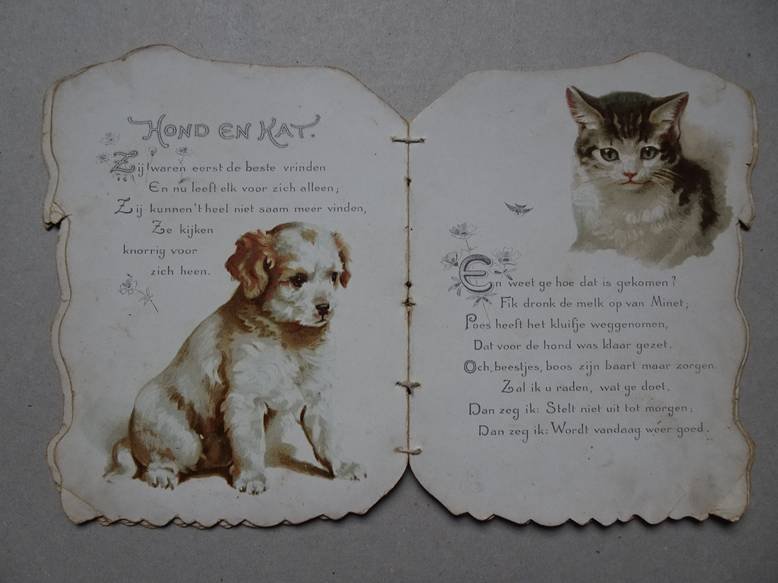 HOND EN KAT.
Zij waren eerst de beste vrinden
En nu leeft elk voor zich alleen;
Zij kunnen't heel niet saam meer vinden,
Ze kijken
knorrig voor
zich heen.
En weet ge hoe dat is gekomen?
Fik dronk de melk op van Minet;
Poes heeft het kluifje weggenomen,
Dat voor de hond was klaar gezet.
Och, beestjes, boos zijn baart maar zorgen.
Zal ik u raden, wat ge doet.
Dan zeg ik: Stelt niet uit tot morgen;
Dan zeg ik: Wordt vandaag weer goed.